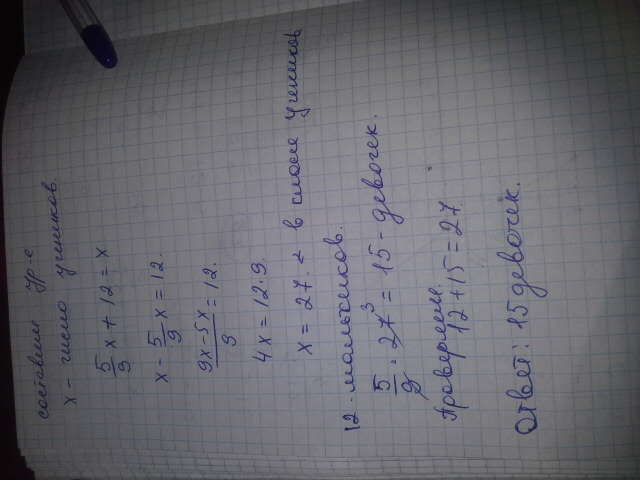 составим ур-е
x - число учеников.
5/9 x + 12 = x
x - 5/9 x = 12.
9x-5x/9 = 12.
4x = 12·9.
x = 27. < в классе учеников
12 - мальчиков.
5/9 · 27³ = 15 - девочек.
Проверяем.
12+15=27
Ответ: 15 девочек.